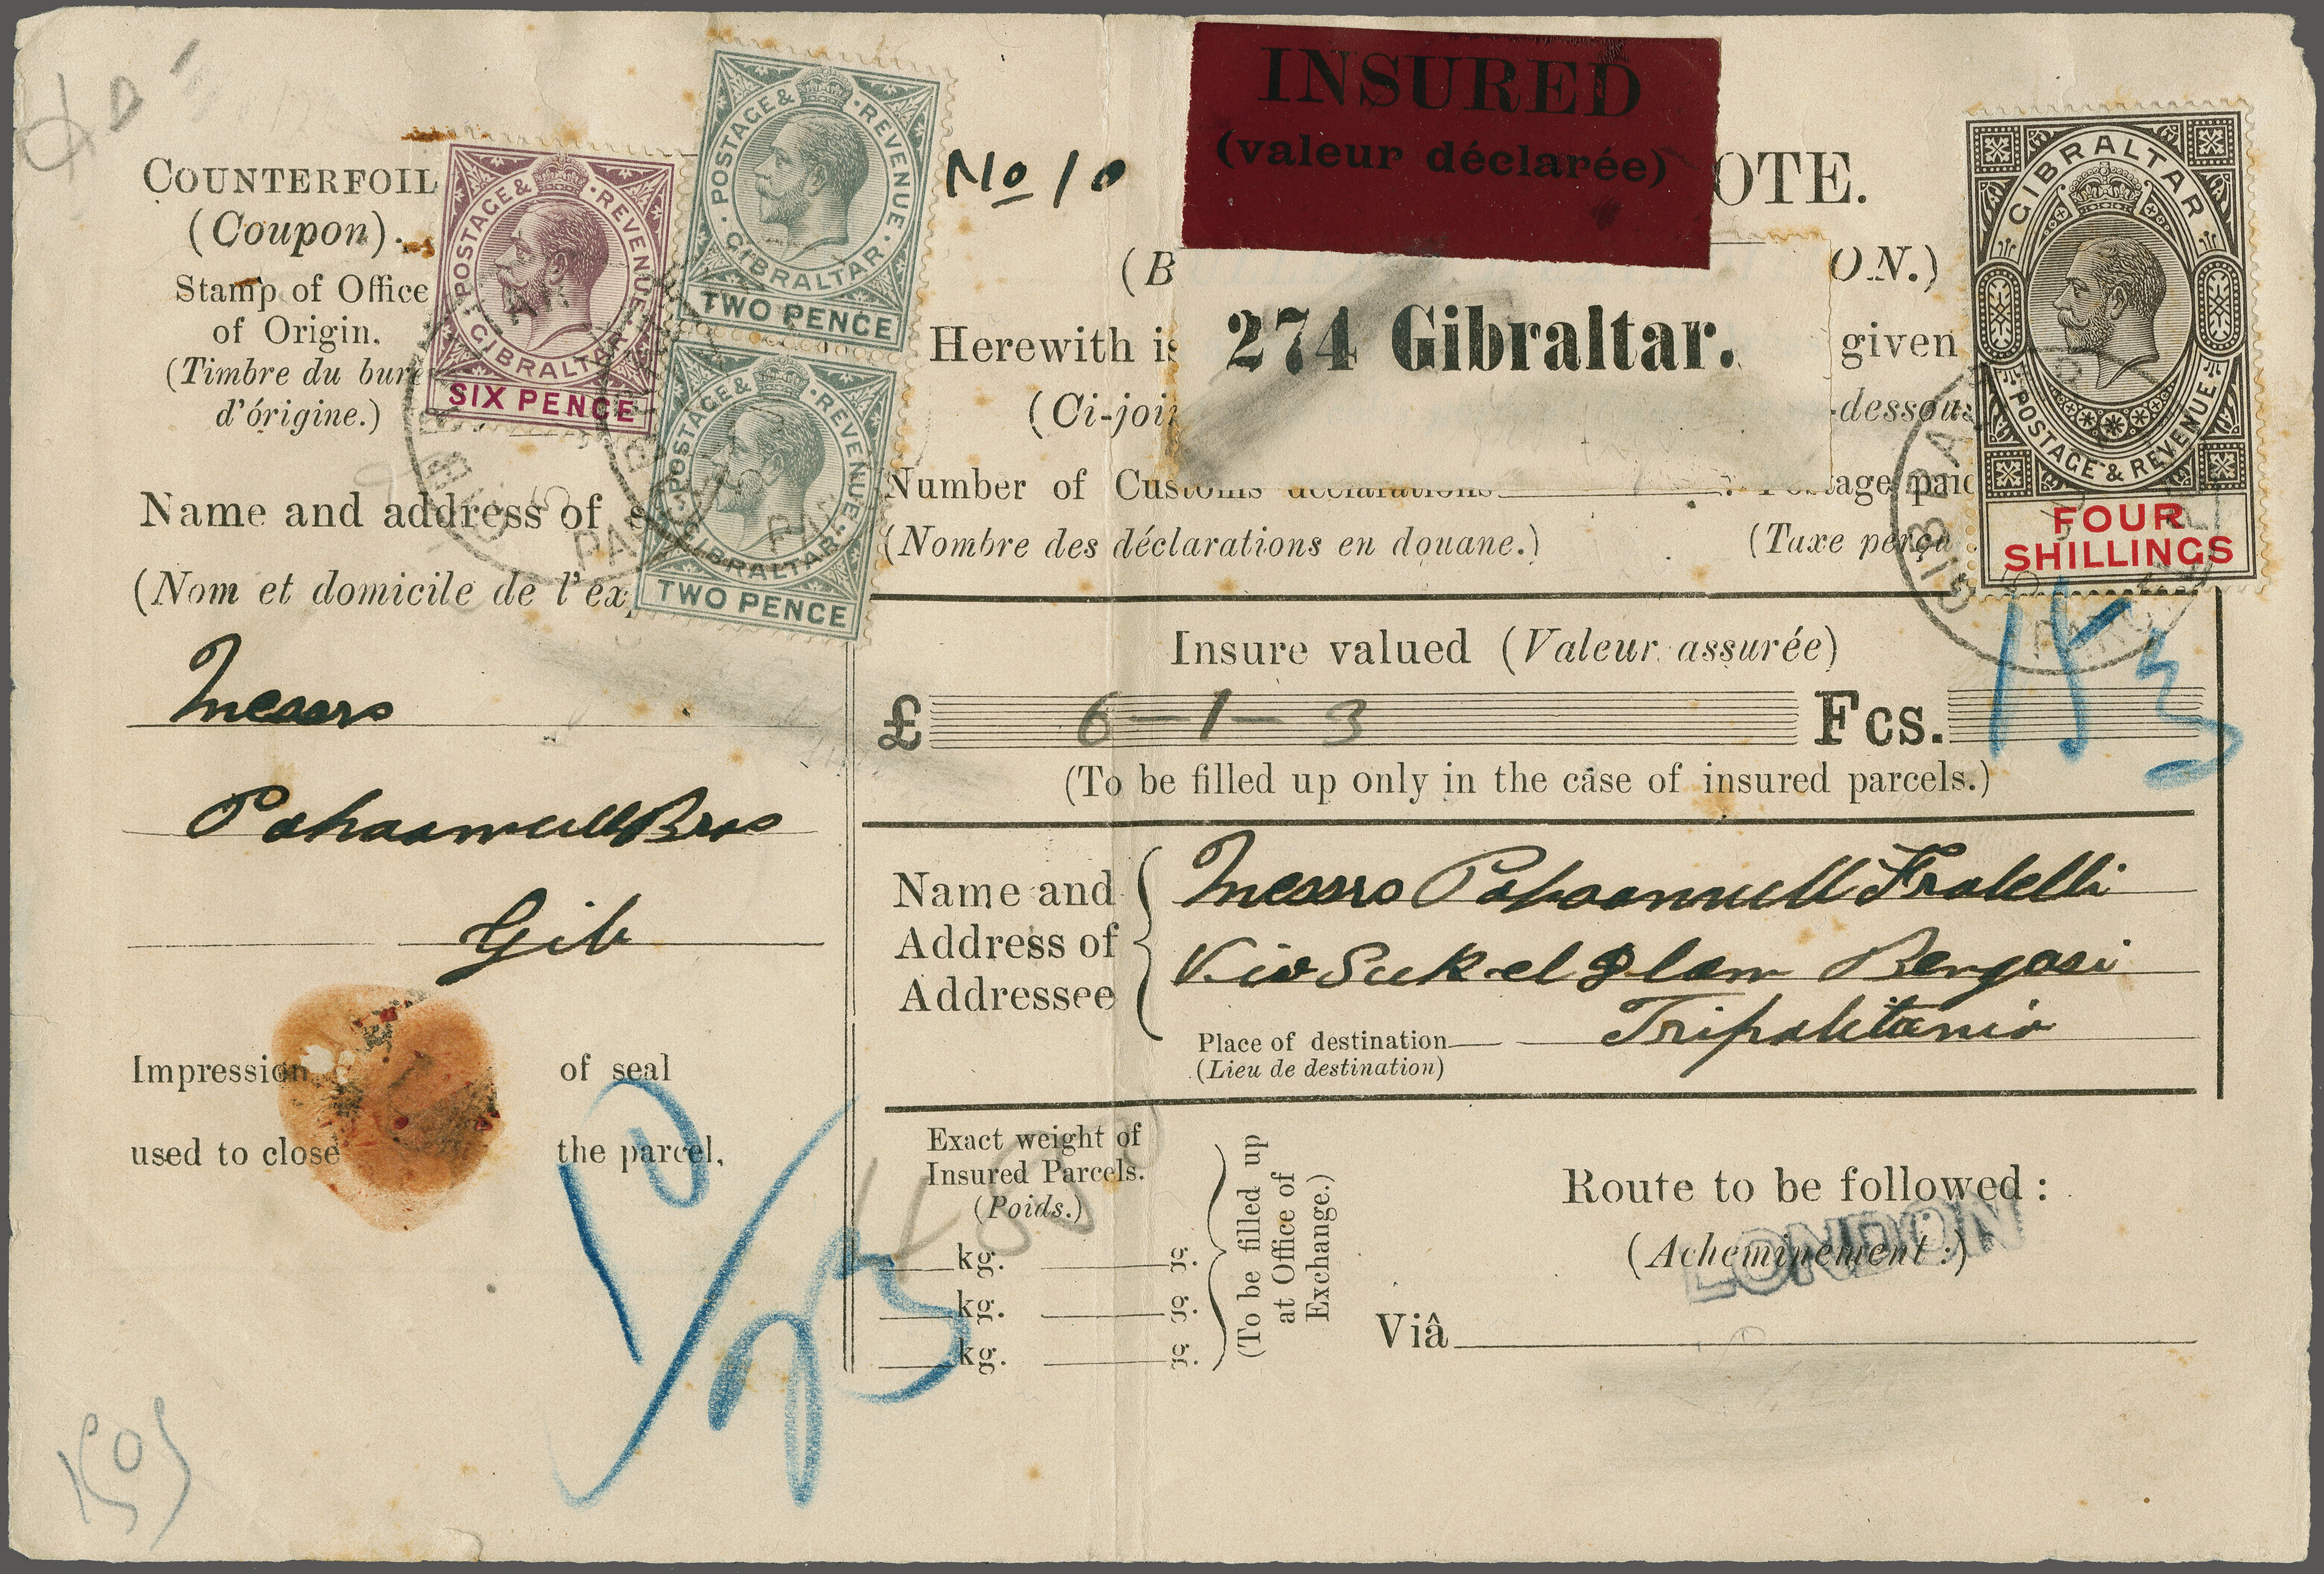 COUNTERFOIL
(Coupon).
Stamp of Office
of Origin.
(Timbre du bure
d'órigine.)
POSTAGE & REVENUE
GIBRALTAR
SIX PENCE
POSTAGE & REVENUE
GIBRALTAR
TWO PENCE
POSTAGE & REVENUE
GIBRALTAR
TWO PENCE
Name and address of s
(Nom et domicile de l'ex
Messrs
Pohoomull Bros
Gib
Impression of seal
used to close the parcel,
No 10
INSURED
(valeur déclarée)
OTE.
(B ON.)
274 Gibraltar.
Herewith is given
(Ci-join -dessous
Number of Customs declarations Postage paid
(Nombre des déclarations en douane.) (Taxe perçu
GIBRALTAR
POSTAGE & REVENUE
FOUR
SHILLINGS
Insure valued (Valeur assurée)
£ 6-1-3 Fcs. 153
(To be filled up only in the case of insured parcels.)
Name and
Address of
Addressee
Messrs Pohoomull Fratelli
Via Suk-el Dlam Bengasi
Tripolitania
Place of destination
(Lieu de destination)
Exact weight of
Insured Parcels.
(Poids.)
kg. gr.
kg. gr.
kg. gr.
(To be filled up
at Office of
Exchange.)
Route to be followed :
(Acheminement :)
LONDON
Viâ